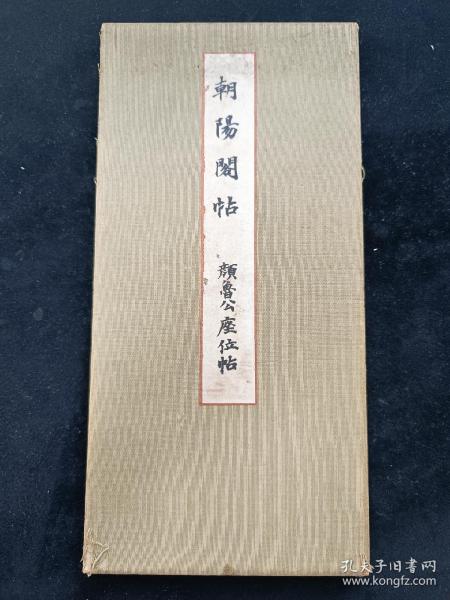 朝陽閣帖
顏魯公座位帖
孔夫子旧书网
www.kongfz.com